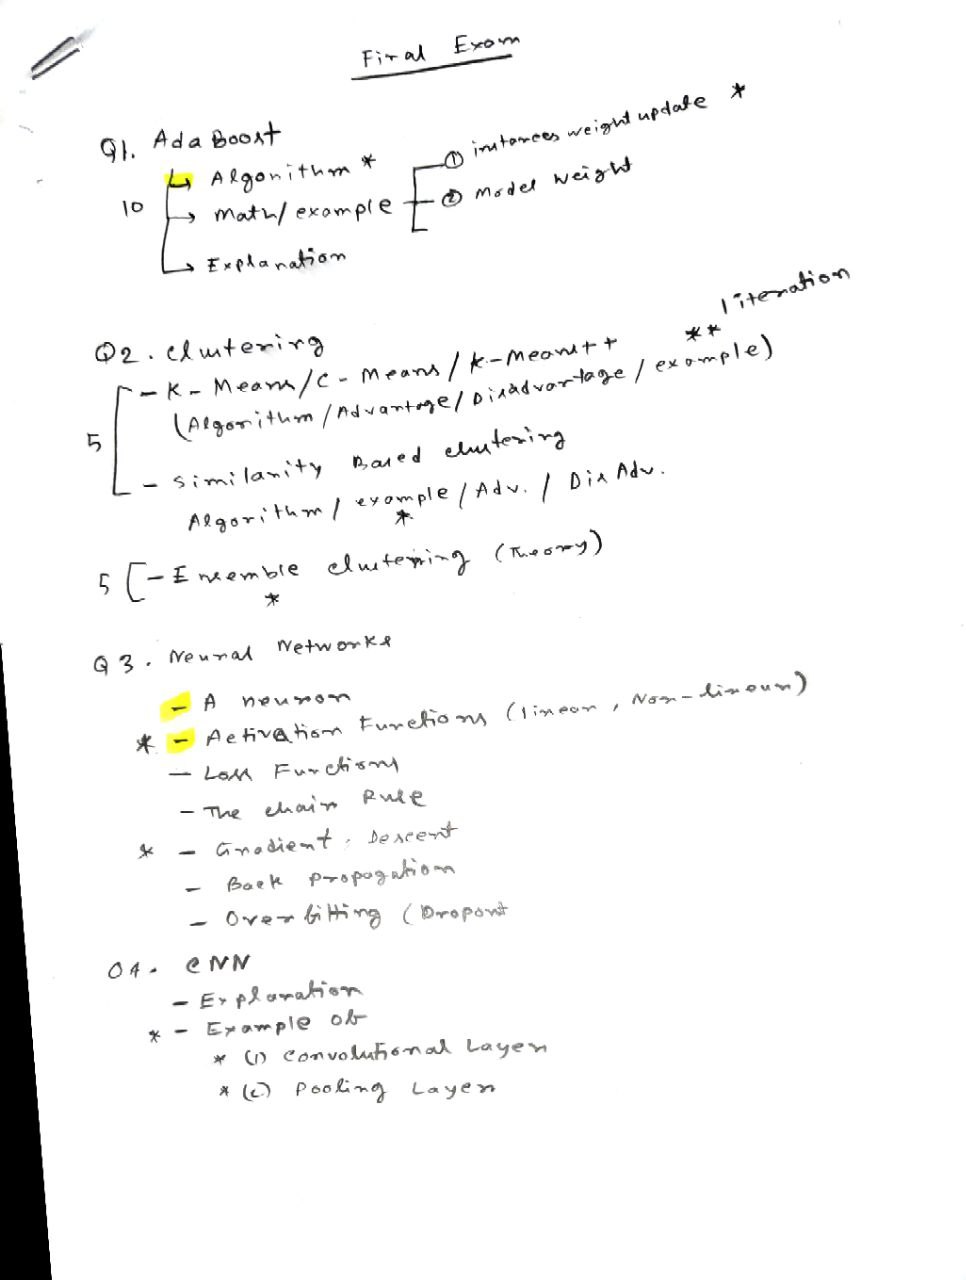 Final Exam
Q1. AdaBoost
Algorithm *
① instances weight update *
10
Math/example
② Model weight
Explanation
Q2. Clustering
** 1 iteration
- K-Means/C-Means/K-Means++
(Algorithm/Advantage/Disadvantage/example)
5
- Similarity Based clustering
Algorithm/example/Adv./DisAdv.
*
5 [- Ensemble clustering (Theory)
*
Q3. Neural Networks
- A neuron
* - Activation Functions (linear, Non-linear)
- Loss Functions
- The chain Rule
* - Gradient Descent
- Back propagation
- Overfitting (Dropout
Q4. CNN
- Explanation
* - Example of
* (1) Convolutional Layer
* (2) Pooling Layer